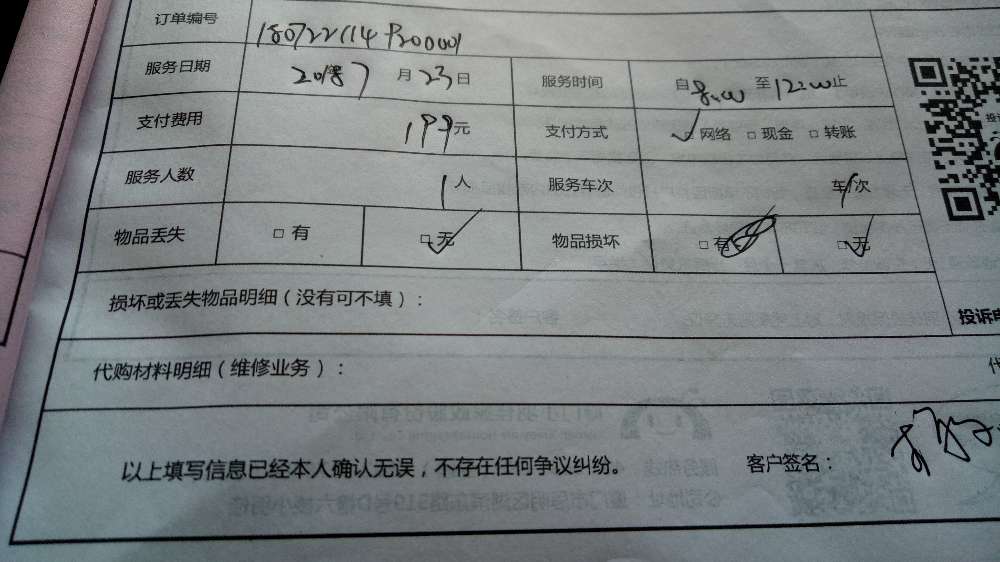 订单编号 180722114920001
服务日期 2018年7月23日 服务时间 自8:00至12:00止
支付费用 199元 支付方式 □网络 □现金 □转账
服务人数 1人 服务车次 车1次
物品丢失 □有 □无 物品损坏 □有 □无
损坏或丢失物品明细（没有可不填）：
投诉
代购材料明细（维修业务）：
以上填写信息已经本人确认无误，不存在任何争议纠纷。 客户签名：